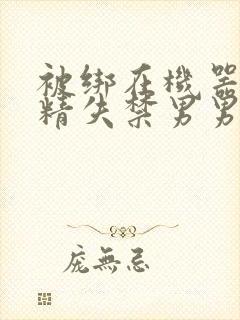 被绑在機器
精失禁男男
庞無忌